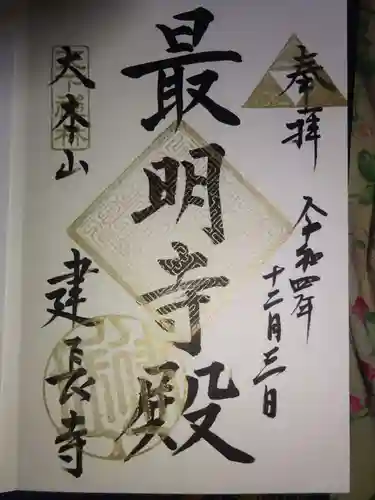 奉拝
令和四年
十二月三日
最明寺殿
大本山
建長寺